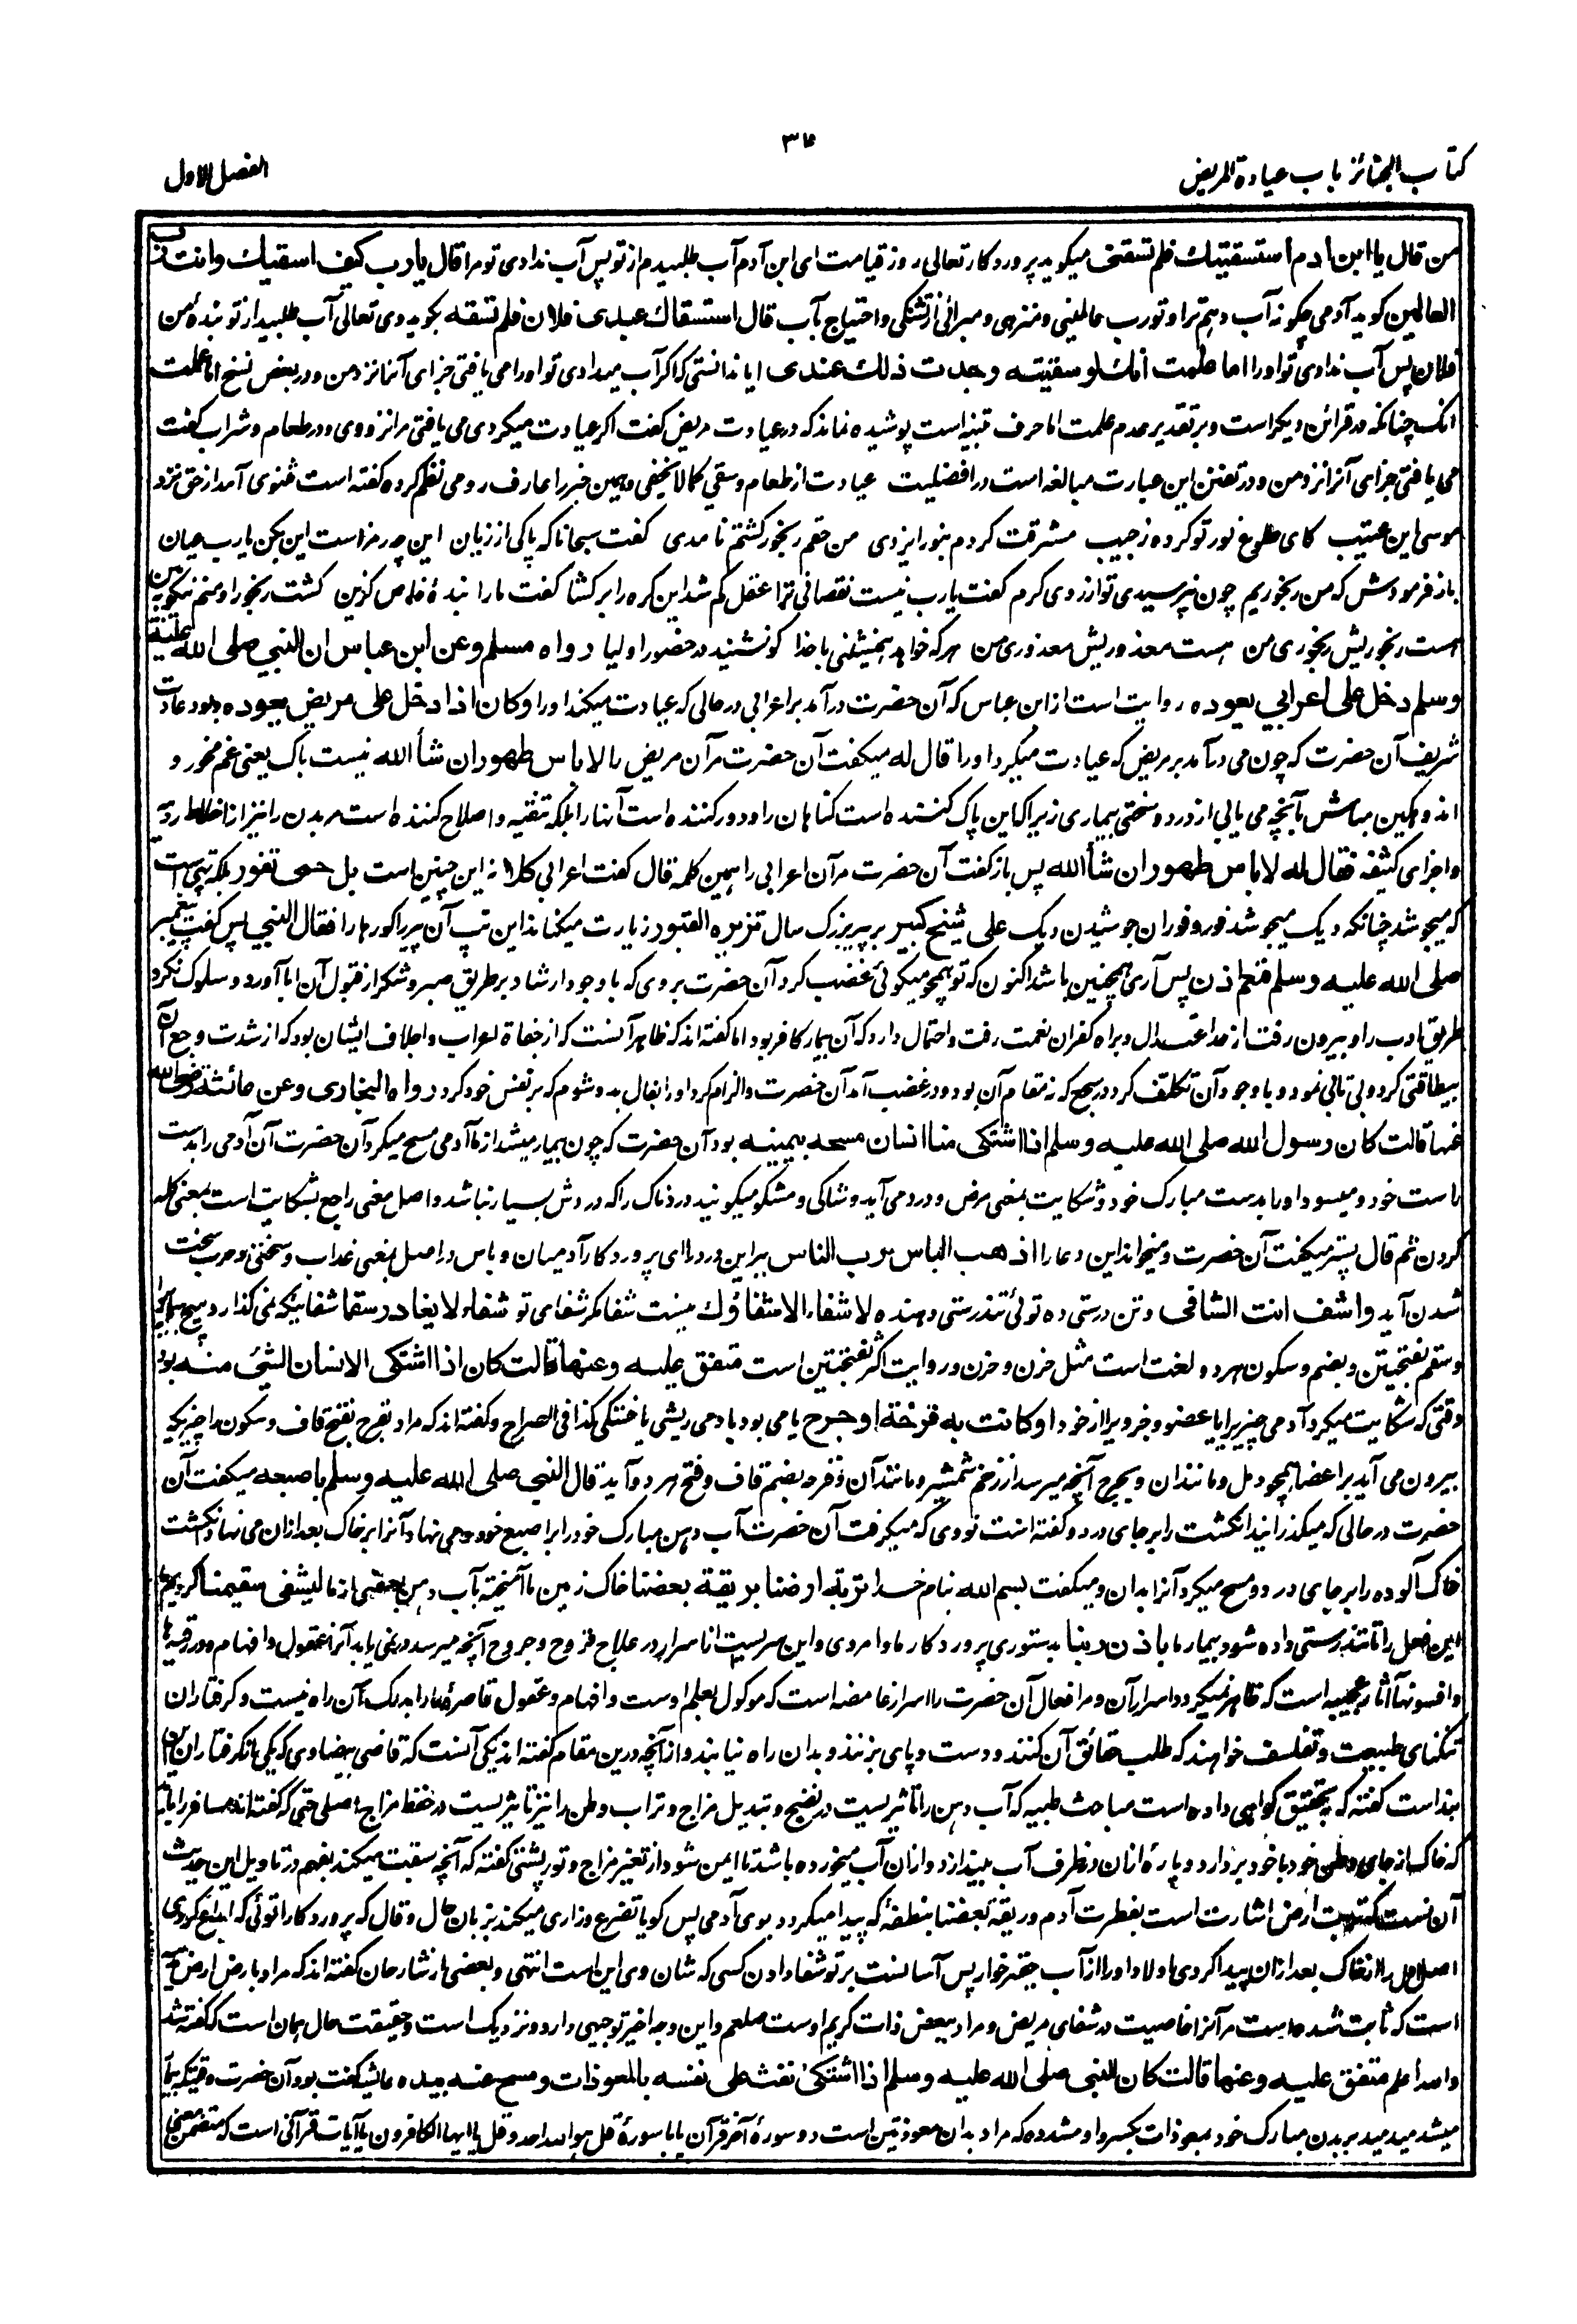 كتاب الجنائز باب عيادة المريض
الفصل الاول
من قال يا ابن ادم استسقيتك فلم تسقنى ميكويد پروردكار تعالى روز قيامت اى ابن آدم آب طلبيدم از تو پس آب ندادى تو مرا قال يا رب كيف اسقيك وانت رب
العالمين كويد آدمى چكونه آب دهم ترا و تو رب عالمينى و منزهى و مبرائى از تشنكى و احتياج بآب قال استسقاك عبدى فلان فلم تسقه بكويد وى تعالى آب طلبيد از تو بنده من
فلان پس آب ندادى تو او را اما علمت انك لو سقيته وجدت ذلك عندى ايا ندانستى كه اكر آب ميدادى تو او را مى يافتى جزاى آنرا نزد من و در بعض نسخ اما علمت
انك چنانكه در قرائن ديكر است و بر تقدير عدم علمت اما حرف تنبيه است پوشيده نماند كه در عيادت مريض كفت اكر عيادت ميكردى مى يافتى مرا نزد وى و در طعام و شراب كفت
مى يافتى جزاى آنرا نزد من و در تفنن اين عبارت مبالغه است در افضليت عيادت از طعام و سقي كما لا يخفى و همين خبر را عارف رومى نظم كرده كفته است مثنوى آمد از حق نزد
موسى اين عتيب كاى طلوع نور تو كرده ز جيب مشرقت كردم بنور ايزدى من حقم رنجور كشتم نامدى كفت سبحانا كه پاكى از زيان اين چه رمز است اين بكن يا رب عيان
باز فرمودش كه من رنجوريم چون نپرسيدى تو از روى كرم كفت يا رب نيست نقصانى ترا عقل كم شد اين كره را بر كشا كفت مارا بندۀ خاص كزين كشت رنجور او منم نيكو ببين
هست رنجوريش رنجورى من هست معذوريش معذورى من هر كه خواهد همنشينى با خدا كو نشيند در حضور اوليا رواه مسلم وعن ابن عباس ان النبي صلى الله عليه
وسلم دخل على اعرابي يعوده روايت است از ابن عباس كه آن حضرت در آمد بر اعرابي در حالى كه عيادت ميكند او را وكان اذا دخل على مريض يعوده و بود عادت
شريف آن حضرت كه چون مى در آمد بر مريض كه عيادت ميكرد او را قال له ميكفت آن حضرت مر آن مريض را لا باس طهور ان شاء الله نيست باك يعنى غم مخور و
اندوهكين مباش بآنچه مى يابي از درد و سختى بيمارى زيرا كه اين پاك كننده است كناهان را و دور كننده است آنها را بلكه تنقيه و اصلاح كننده است مر بدن را نيز از اخلاط رديه
و اجزاى كثيفه فقال له لا باس طهور ان شاء الله پس باز كفت آن حضرت مر آن اعرابي را همين كلمه قال كفت اعرابي كلا نه اين چنين است بل حمى تفور بلكه تپى است
كه ميجوشد چنانكه ديك ميجوشد فور و فوران جوشيدن ديك على شيخ كبير بر پير بزرك سال تزيره القبور زيارت ميكناند اين تپ آن پير را كورها را فقال النبي پس كفت پيغمبر
صلى الله عليه وسلم فنعم اذن پس آرى همچنين باشد اكنون كه تو همچو ميكوئى غضب كرد آن حضرت بر وى كه با وجود ارشاد بر طريق صبر و شكر از قبول آن ابا آورد و سلوك نكرد
طريق ادب را و بيرون رفت از حد اعتدال و براه كفران نعمت رفت و احتمال دارد كه آن بيمار كافر بود اما كفته اند كه ظاهر آنست كه از جفاة اعراب و اجلاف ايشان بود كه از شدت وجع آن
بيطاقتى كرد و بى تابي نمود و با وجود آن تكلف كرد در سجع كه نه مقام آن بود و در غضب آمد آن حضرت و الزام كرد او را بفال بد و شوم كه بر نفس خود كرد رواه البخارى وعن عائشة رضى الله
عنها قالت كان رسول الله صلى الله عليه وسلم اذا اشتكى منا انسان مسحه بيمينه بود آن حضرت كه چون بيمار ميشد از ما آدمى مسح ميكرد آن حضرت آن آدمى را بدست
راست خود و ميسود او را بدست مبارك خود و شكايت بمعنى مرض و درد مى آيد و شاكى و مشكو ميكويند دردناك را كه دردش بسيار نباشد و اصل معنى راجع بشكايت است بمعنى كله
كردن ثم قال پستر ميكفت آن حضرت و ميخواند اين دعا را اذهب الباس رب الناس ببر اين درد را اى پروردكار آدميان و باس در اصل بمعنى عذاب و سختى و حرب سخت
شدن آيد واشف انت الشافى و تن درستى ده توئى تندرستى دهنده لا شفاء الا شفاؤك نيست شفا مكر شفاى تو شفاء لا يغادر سقما شفائيكه نمى كذارد هيچ بيمارى
و سقم بفتحتين و بضم و سكون هر دو لغت است مثل حزن و حزن و روايت اكثر بفتحتين است متفق عليه وعنها قالت كان اذا اشتكى الانسان الشئ منه بود
وقتى كه شكايت ميكرد آدمى چيزيرا يا عضو و جزو يرا از خود او كانت به قرحة او جرح يا مى بود بآدمى ريشى يا خستكى كذا فى الصراح و كفته اند كه مراد بقرح بفتح قاف و سكون را چيزيكه
بيرون مى آيد بر اعضا همچو دمل و مانند آن و بجرح آنچه ميرسد از زخم شمشير و مانند آن و قرحه بضم قاف و فتح هر دو آيد قال النبي صلى الله عليه وسلم باصبعه ميكفت آن
حضرت در حالى كه ميكذرانيد انكشت را بر جاى درد و كفته است نووى كه ميكرفت آن حضرت آب دهن مبارك خود را بر اصبع خود و مى نهاد آنرا بر خاك بعد ازان مى نهاد انكشت
خاك آلوده را بر جاى درد و مسح ميكرد آنرا بدان و ميكفت بسم الله بنام خدا تربة ارضنا بريقة بعضنا خاك زمين ما آميخته بآب دهن بعضى از ما ليشفى سقيمنا كرديم ما
اين فعل را تا تندرستى داده شود بيمار ما باذن ربنا بدستورى پروردكار ما و امر وى و اين سريست از اسرار در علاج قروح و جروح آنچه ميرسد و نمى يابد آنرا عقول و افهام و در رقيه ها
و افسونها آثار عجيبه است كه ظاهر نميكردد اسرار آن و مر افعال آن حضرت را اسرار غامضه است كه موكول بعلم اوست و افهام و عقول قاصرۀ ما را بدرك آن راه نيست و كرفتاران
تنكناى طبيعت و تفلسف خواهند كه طلب حقائق آن كنند و دست و پاى بزنند و بدان راه نيابند و از آنچه درين مقام كفته اند يكى آنست كه قاضى بيضاوى كه يكى از كرفتاران اين
بند است كفته كه بتحقيق كواهى داده است مباحث طبيه كه آب دهن را تاثيريست در نضج و تبديل مزاج و تراب وطن را نيز تاثيريست در حفظ مزاج اصلى حتى كه كفته اند مسافر را بايد
كه خاك از جاى وطن خود با خود بردارد و پارۀ ازان در ظرف آب بيندازد و ازان آب ميخورده باشد تا ايمن شود از تغير مزاج و توربشتى كفته كه آنچه سبقت ميكند بفهم در تاويل اين حديث
آن نست كه تربت ارض اشارت است بفطرت آدم و ريقة بعضنا بنطفۀ كه پيدا ميكردد بوى آدمى پس كويا تضرع و زارى ميكند بزبان حال و قال كه پروردكارا توئى كه ابداع كردى
اصل اول را از خاك بعد ازان پيدا كردى اولاد او را از آب حقير خوار پس آسانست بر تو شفا دادن كسى كه شان وى اين است انتهى و بعضى از شارحان كفته اند كه مراد بارض ارض مدينه
است كه ثابت شده است مر آنرا خاصيت در شفاى مريض و مراد ببعض ذات كريم اوست صلعم و اين وجه اخير توجيهى دارد و نزديك است و حقيقت حال همان است كه كفته شد
والله اعلم متفق عليه وعنها قالت كان النبي صلى الله عليه وسلم اذا اشتكى نفث على نفسه بالمعوذات ومسح عنه بيده عائشه كفت بود آن حضرت وقتيكه بيمار
ميشد ميدميد بر بدن مبارك خود بمعوذات بكسر واو مشدده كه مراد بدان معوذتين است دو سورۀ آخر قرآن يا با سورۀ قل هو الله احد و قل يا ايها الكافرون يا آيات قرآنى است كه متضمن معنى